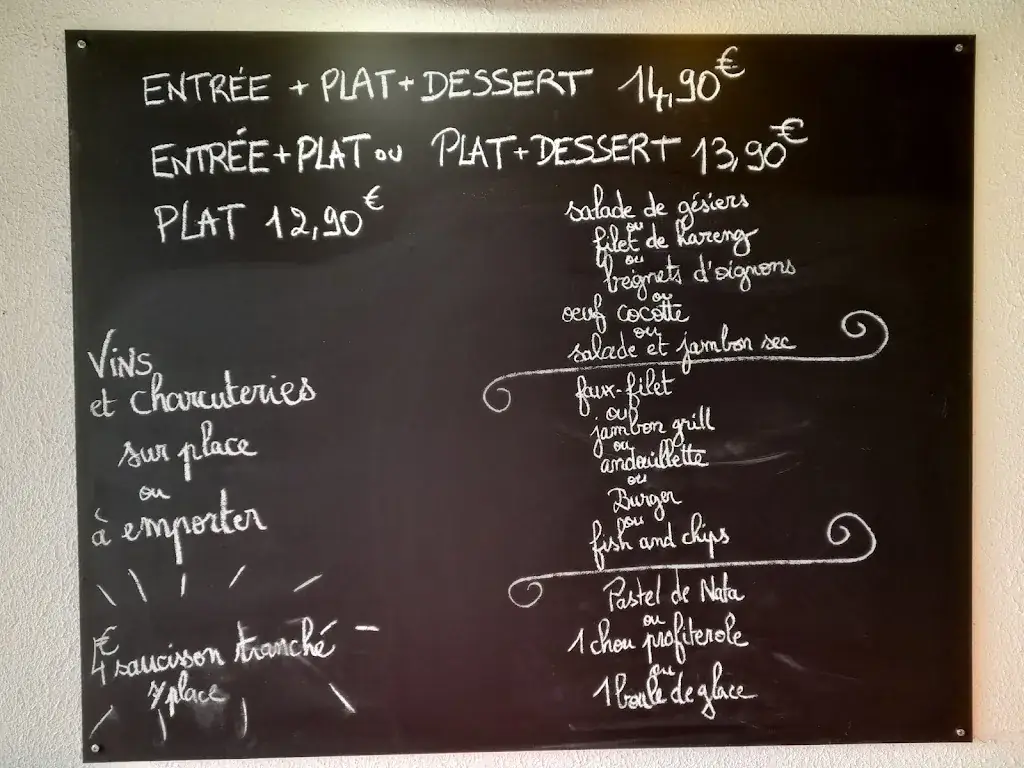 ENTRÉE + PLAT + DESSERT 14,90€
ENTRÉE + PLAT ou PLAT + DESSERT 13,90€
PLAT 12,90€
salade de gésiers
ou
filet de hareng
ou
beignets d'oignons
ou
oeuf cocotte
ou
salade et jambon sec
faux-filet
ou
jambon grill
ou
andouillette
ou
Burger
ou
fish and chips
Pastel de Nata
ou
1 chou profiterole
ou
1 boule de glace
Vins
et charcuteries
sur place
ou
à emporter
4€ saucisson tranché
s/place